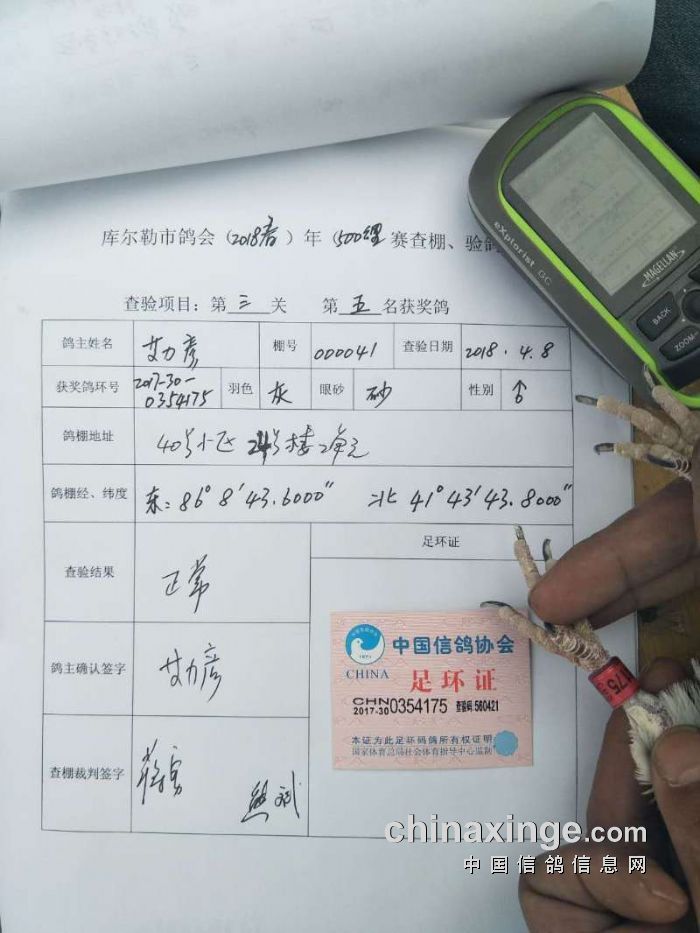 库尔勒市鸽会(2018春)年(500公里 赛查棚、验鸽
查验项目：第三关 第五名获奖鸽
鸽主姓名 艾力彦 棚号 000041 查验日期 2018.4.8
获奖鸽环号 2017-30-0354175 羽色 灰 眼砂 砂 性别 ♂
鸽棚地址 40号小区 号楼2单元
鸽棚经、纬度 东：86°8′43.6000″ 北 41°43′43.8000″
查验结果 正常
足环证
鸽主确认签字 艾力彦
查棚裁判签字
中国信鸽协会
CHINA
足环证
CHN
2017-30 0354175 查验码:560421
本证为此足环码鸽所有权证明
国家体育总局社会体育指导中心监制
175
eXplorist GC
MAGELLAN
BACK
ZOOM-
chinaxinge.com
中国信鸽信息网